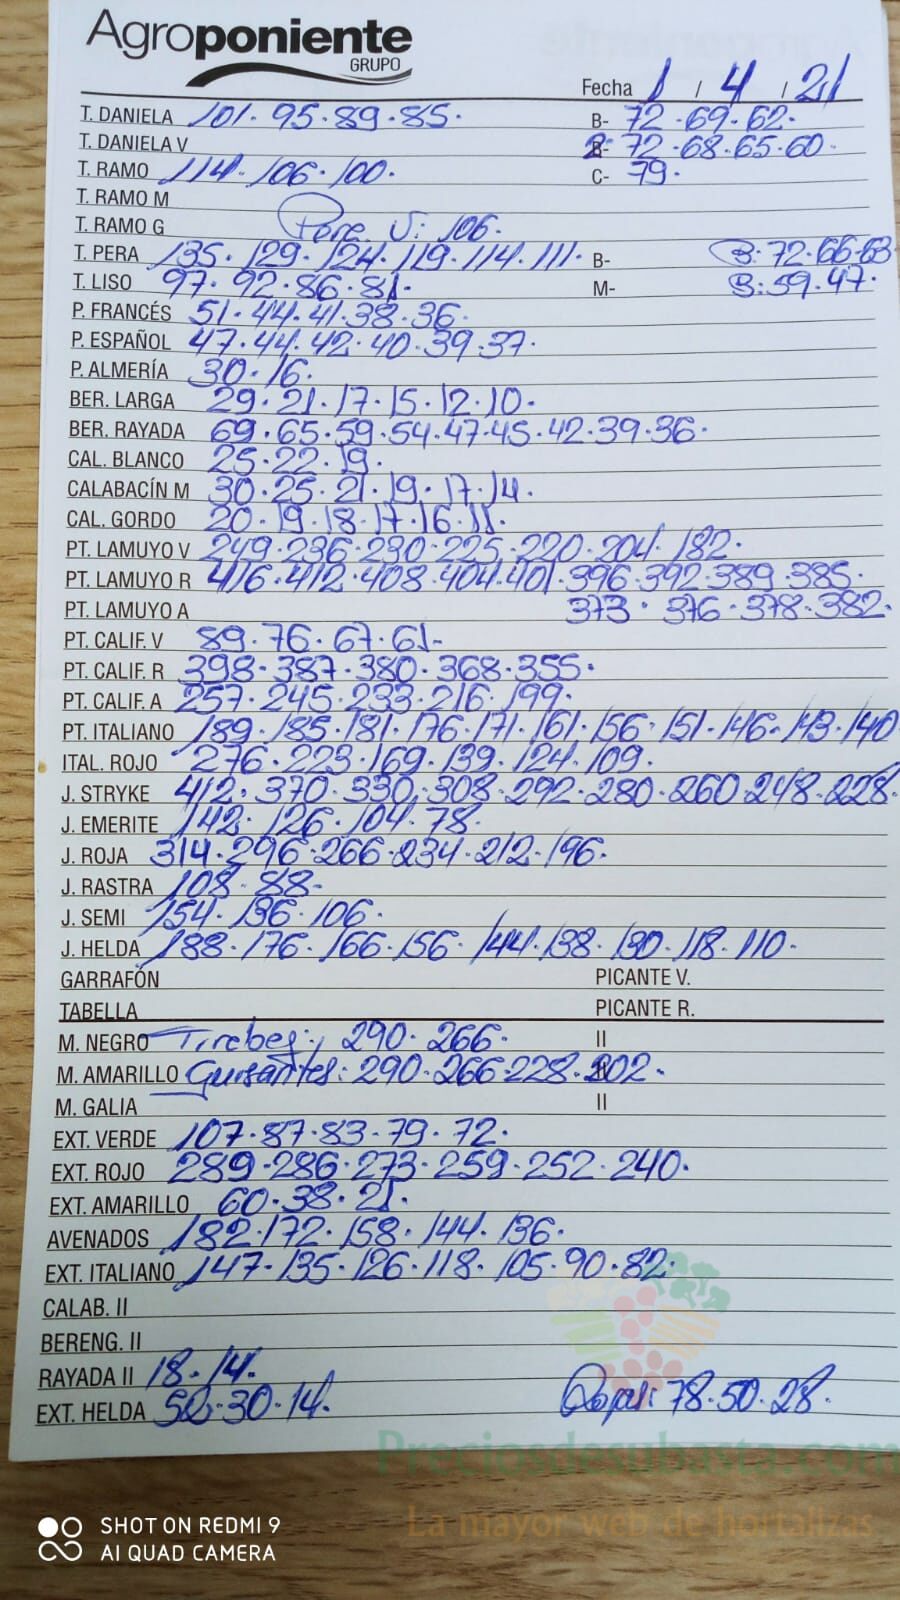 Agroponiente
GRUPO
Fecha 1 / 4 / 21
T. DANIELA 101. 95. 89. 85. B- 72. 69. 62.
T. DANIELA V 2: 72. 68. 65. 60.
T. RAMO 114. 106. 100. C- 79.
T. RAMO M
T. RAMO G Pare. V: 106.
T. PERA 135. 129. 124. 119. 114. 111. B- B: 72. 66. 63
T. LISO 97. 92. 86. 81. M- B: 59. 47.
P. FRANCÉS 51. 44. 41. 38. 36.
P. ESPAÑOL 47. 44. 42. 40. 39. 37.
P. ALMERÍA 30. 16.
BER. LARGA 29. 21. 17. 15. 12. 10.
BER. RAYADA 69. 65. 59. 54. 47. 45. 42. 39. 36.
CAL. BLANCO 25. 22. 19.
CALABACÍN M 30. 25. 21. 19. 17. 14.
CAL. GORDO 20. 19. 18. 17. 16. 11.
PT. LAMUYO V 249. 236. 230. 225. 220. 204. 182.
PT. LAMUYO R 416. 412. 408. 404. 401. 396. 392. 389. 385.
PT. LAMUYO A 373. 376. 378. 382.
PT. CALIF. V 89. 76. 67. 61-
PT. CALIF. R 398. 387. 380. 368. 355.
PT. CALIF. A 257. 245. 233. 216. 199.
PT. ITALIANO 189. 185. 181. 176. 171. 161. 156. 151. 146. 143. 140
ITAL. ROJO 276. 223. 169. 139. 124. 109.
J. STRYKE 412. 370. 330. 308. 292. 280. 260. 248. 228.
J. EMERITE 142. 126. 104. 78.
J. ROJA 314. 296. 266. 234. 212. 196.
J. RASTRA 108. 88.
J. SEMI 154. 136. 106.
J. HELDA 188. 176. 166. 156. 144. 138. 130. 118. 110.
GARRAFÓN PICANTE V.
TABELLA PICANTE R.
M. NEGRO Tirabeq: 290. 266. II
M. AMARILLO Guisantes: 290. 266. 228. 202.
M. GALIA II
EXT. VERDE 107. 87. 83. 79. 72.
EXT. ROJO 289. 286. 273. 259. 252. 240.
EXT. AMARILLO 60. 38. 21.
AVENADOS 182. 172. 158. 144. 136.
EXT. ITALIANO 147. 135. 126. 118. 105. 90. 82.
CALAB. II
BERENG. II
RAYADA II 18. 14.
EXT. HELDA 50. 30. 14. 78. 50. 28.
Preciosdesubasta.com
La mayor web de hortalizas
SHOT ON REDMI 9
AI QUAD CAMERA